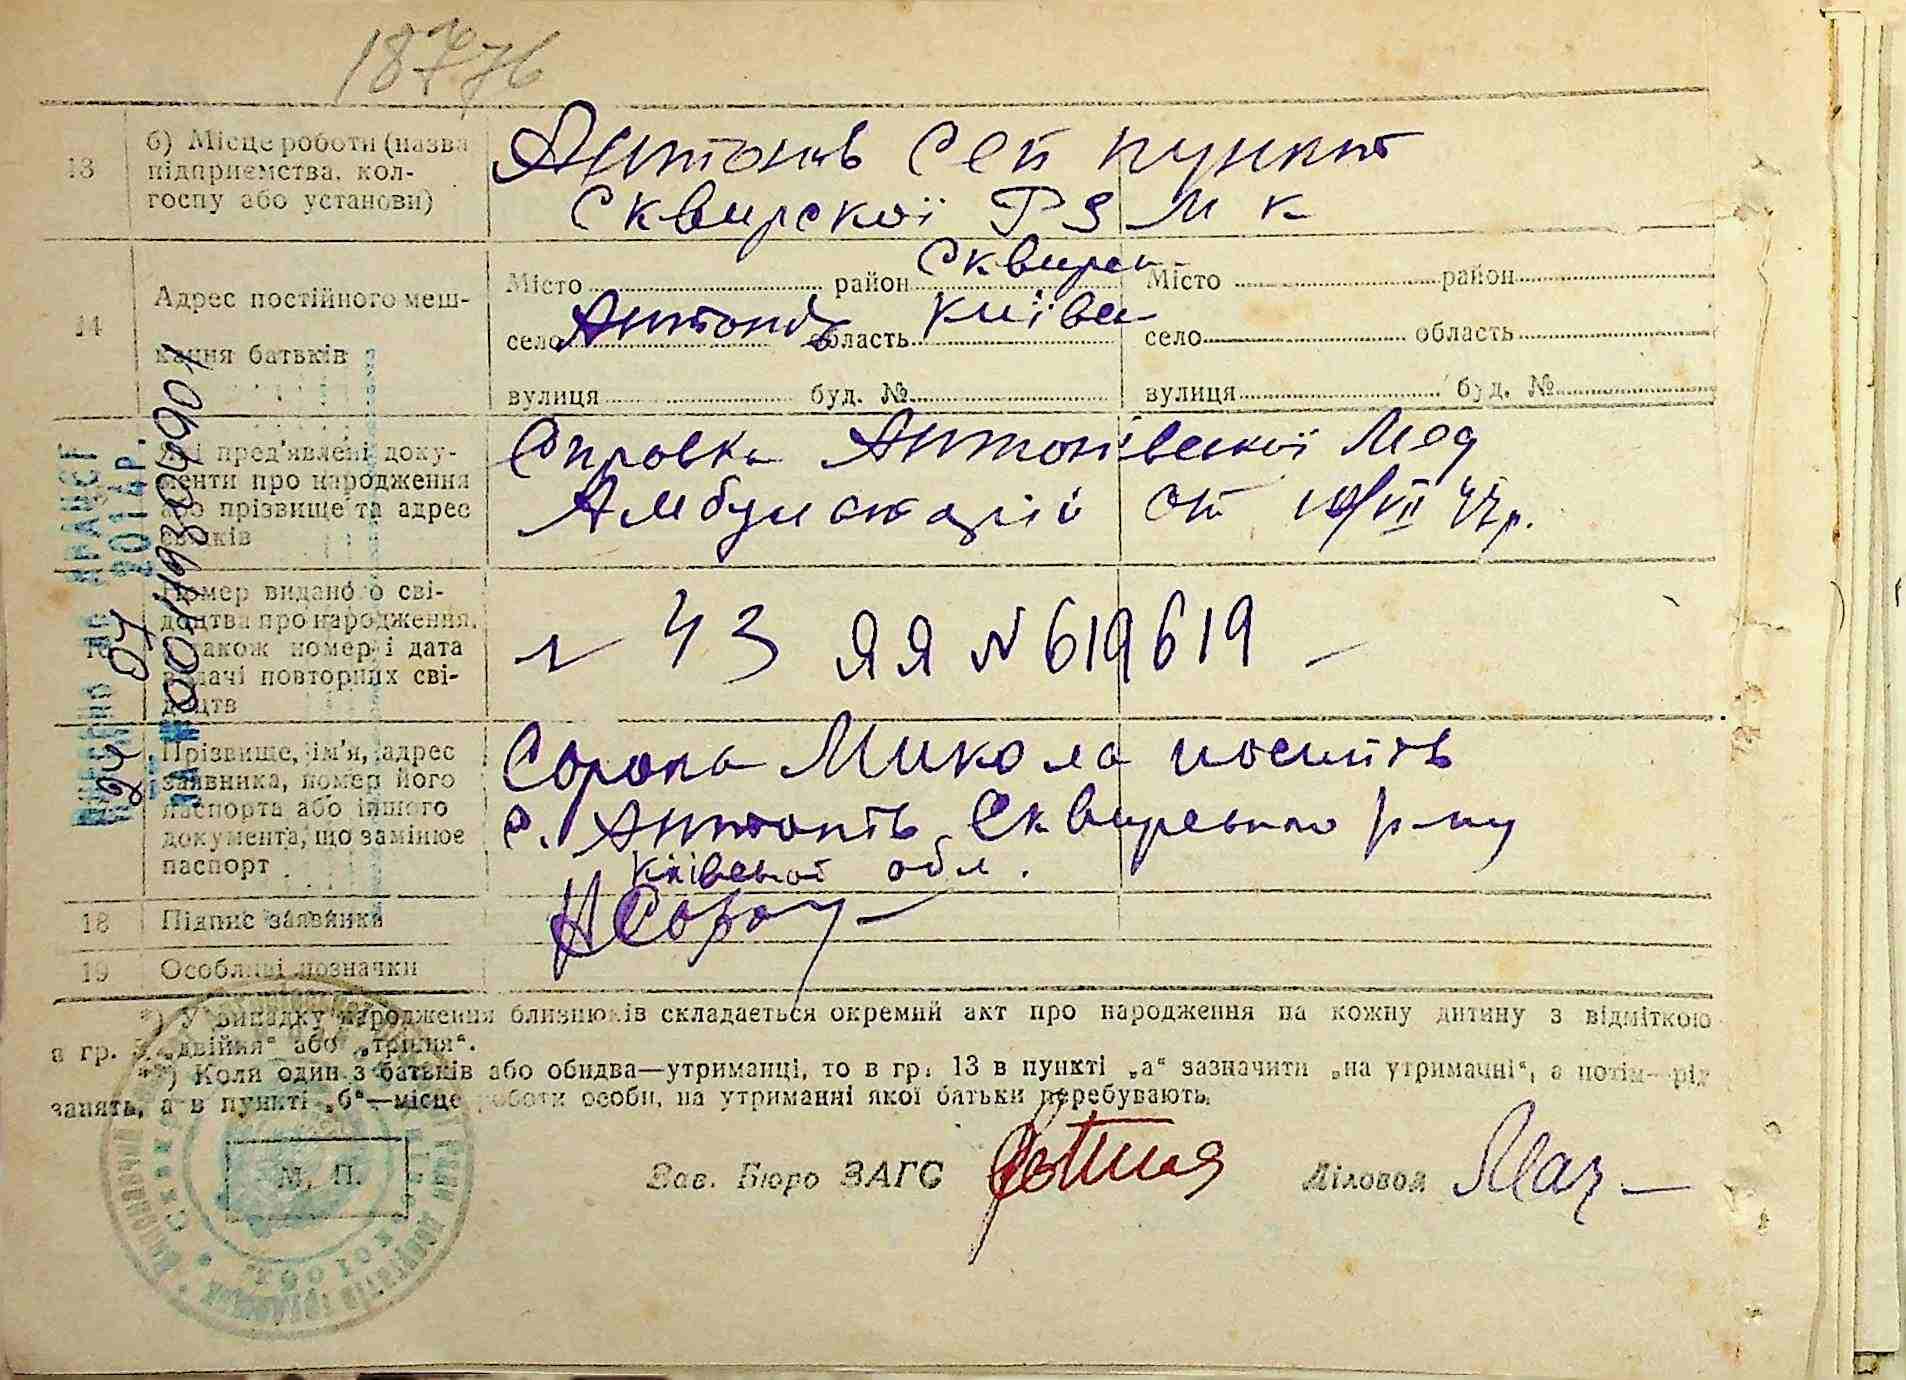 18776
13
б) Місце роботи (назва підприємства, кол-
госпу або установи)
Антонів Сеп пункт
Сквирскої РЗМК
14
Адрес постійного меш-
кання батьків
Місто район Сквирс Місто район
село Антонів область Київс село область
вулиця буд. № вулиця буд. №
Які пред'явлені доку-
менти про народження
або прізвище та адрес
свідків
Справка Антонівської Мед
Амбулаторій от VII 47р.
Номер видано о сві-
доцтва про народження,
також номер і дата
видачі повторних сві-
доцтв
43 ЯЯ №619619
Прізвище, ім'я, адрес
заявника, номер його
паспорта або іншого
документа, що замінює
паспорт
Сорока Микола
с. Антонів Сквирського р-ну
Київської обл.
18
Підпис заявника
НСорок
19
Особливі позначки
*) У випадку народження близнюків складається окремий акт про народження на кожну дитину з відміткою
в гр. 5 „двійня“ або „трійня“.
**) Коли один з батьків або обидва—утриманці, то в гр. 13 в пункті „а“ зазначити „на утриманні“, а потім—рід
занять, а в пункті „б“—місце роботи особи, на утриманні якої батьки перебувають.
М. П.
Зав. Бюро ЗАГС
Діловод
ДРАЦСГ
24 07 201 р.
за № 0011198304901